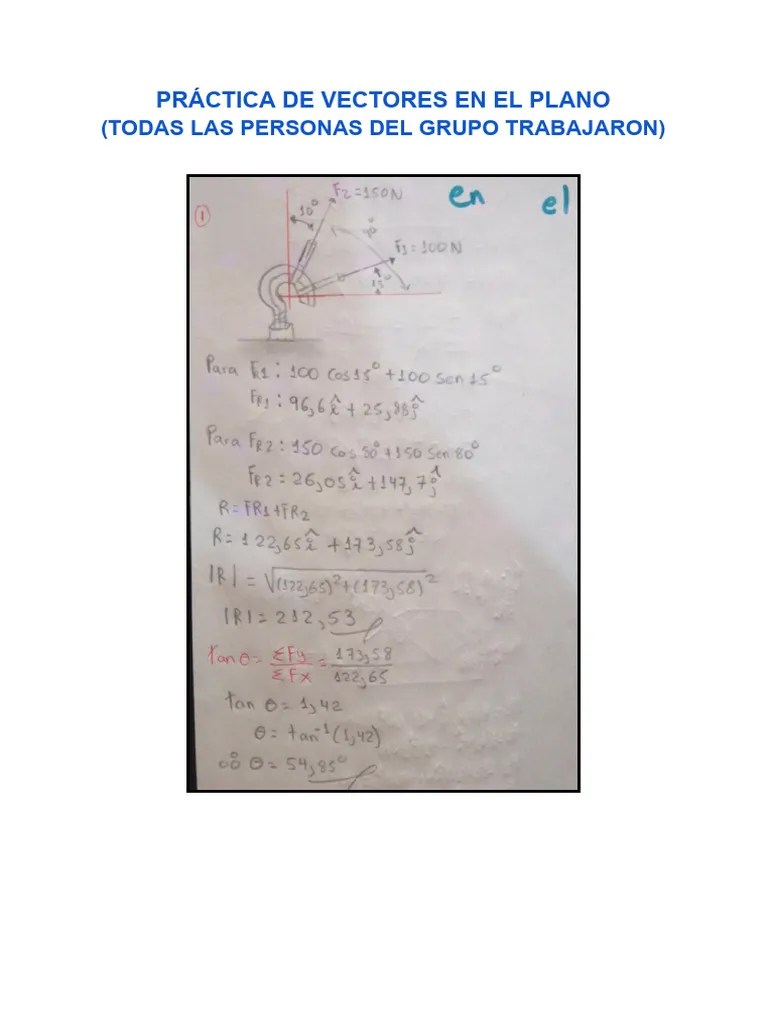 PRÁCTICA DE VECTORES EN EL PLANO
(TODAS LAS PERSONAS DEL GRUPO TRABAJARON)
en el
1
F2=150N
10°
F1=100N
15°
Para FR1: 100 cos15°+100 sen 15°
FR1: 96,6î + 25,88ĵ
Para FR2: 150 cos 80°+150 sen 80°
FR2=26,05î+147,7ĵ
R=FR1+FR2
R=122,65î+173,58ĵ
|R|=√(122,65)²+(173,58)²
|R|=212,53
tanθ= ΣFy/ΣFx = 173,58/122,65
tan θ=1,42
θ= tan⁻¹(1,42)
θ= 54,85°